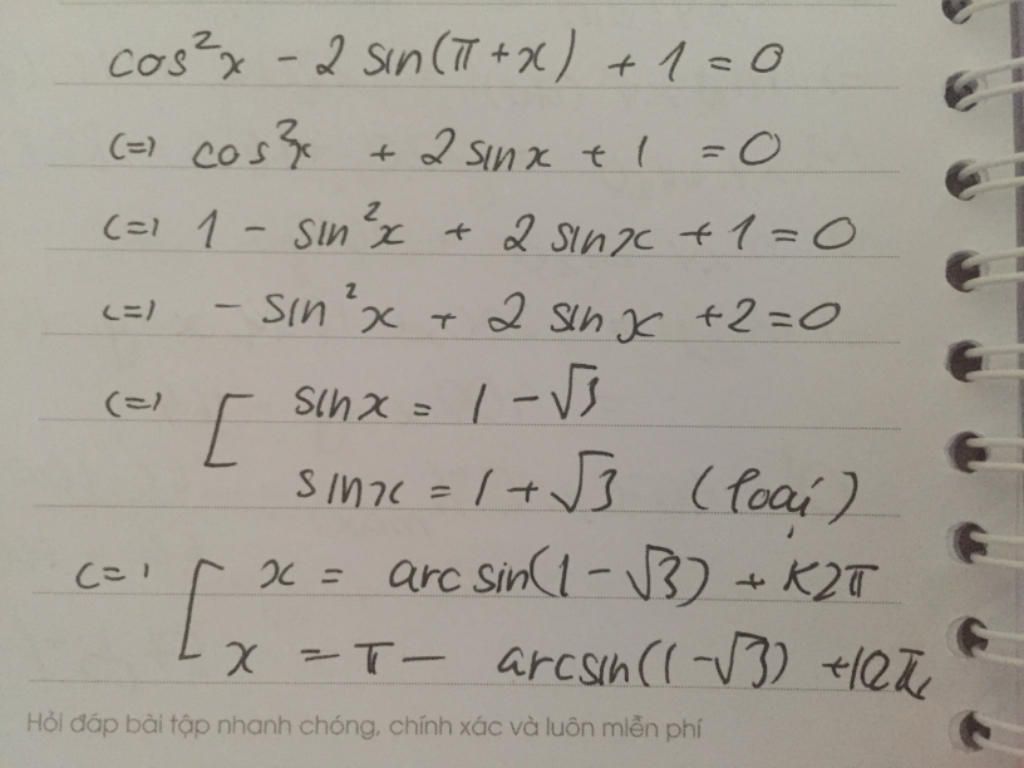 cos²x - 2 sin(π + x) + 1 = 0
(=) cos²x + 2 sinx + 1 = 0
(=) 1 - sin²x + 2 sinx + 1 = 0
(=) - sin²x + 2 sinx + 2 = 0
(=) [ sinx = 1 - √3
sinx = 1 + √3 (loại)
(=) [ x = arcsin(1 - √3) + K2π
x = π - arcsin(1 - √3) + k2π
Hỏi đáp bài tập nhanh chóng, chính xác và luôn miễn phí